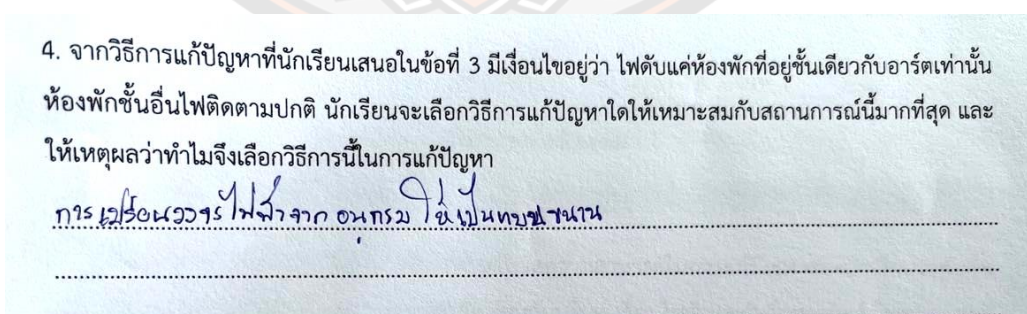 4. จากวิธีการแก้ปัญหาที่นักเรียนเสนอในข้อที่ 3 มีเงื่อนไขอยู่ว่า ไฟดับแค่ห้องพักที่อยู่ชั้นเดียวกับอาร์ตเท่านั้น
ห้องพักชั้นอื่นไฟติดตามปกติ นักเรียนจะเลือกวิธีการแก้ปัญหาใดให้เหมาะสมกับสถานการณ์นี้มากที่สุด และ
ให้เหตุผลว่าทำไมจึงเลือกวิธีการนี้ในการแก้ปัญหา
การเปลี่ยนวงจรไฟฟ้าจาก อนุกรม ให้เป็นแบบขนาน